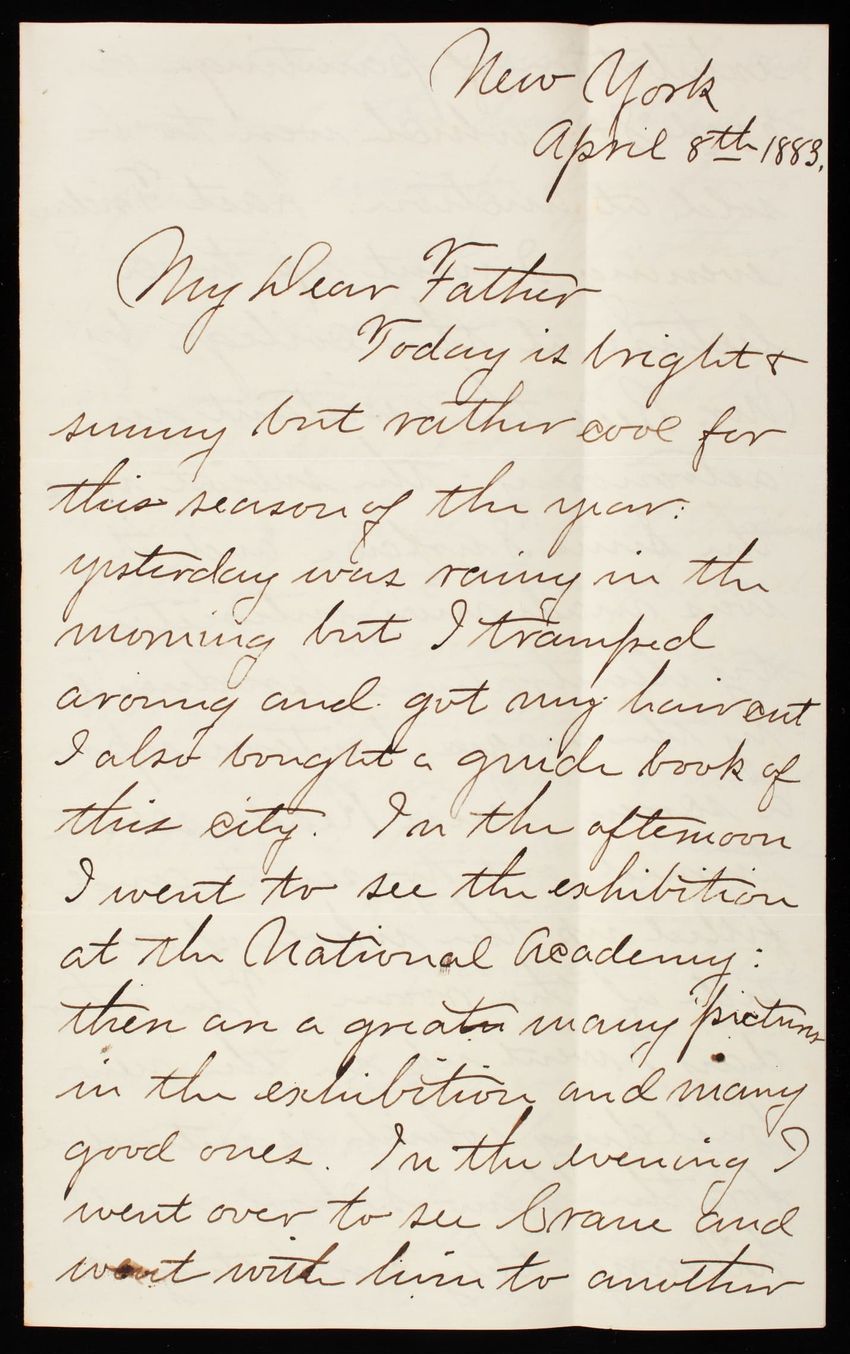 New York
April 8th 1883.
My Dear Father
Today is bright &
sunny but rather cool for
this season of the year:
yesterday was rainy in the
morning but I tramped
aroung and got my hair cut
I also bought a guide book of
this city. In the afternoon
I went to see the exhibition
at the National Academy:
there are a great many pictures
in the exhibition and many
good ones. In the evening I
went over to see Crane and
went with him to another